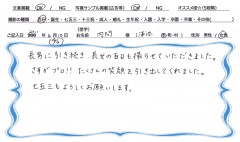 文章掲載 OK / NG 写真サンプル掲載(広告等) OK / NG オススメ度☆(5段階)
撮影の種類 百日・誕生・七五三・十三祝・成人・婚礼・生年祝・入園・入学・卒園・卒業・その他( )
ご記入日 年6月10日 お名前 男・女
長男に引き続き、長女の百日も撮らせていただきました。
さすがプロ!!たくさんの笑顔を引き出してくれました。
七五三もよろしくお願いします。